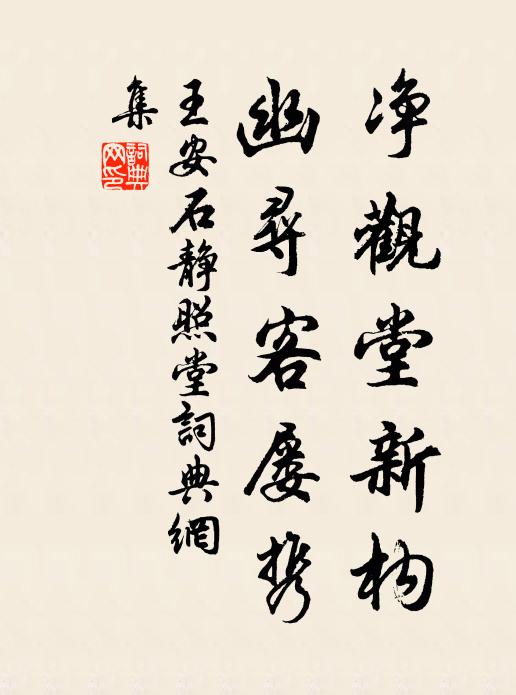 净觀堂新构
幽尋客屡携
王安石静照堂詞典網
集
詞典網印